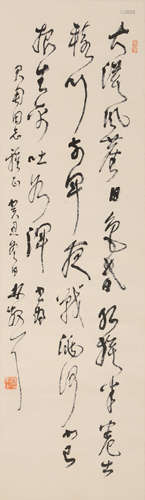 大漠风尘日色昏红旗半卷出
辕门前军夜战洮河北已
报生擒吐谷浑
君甫同志雅正 癸丑冬日 林散之